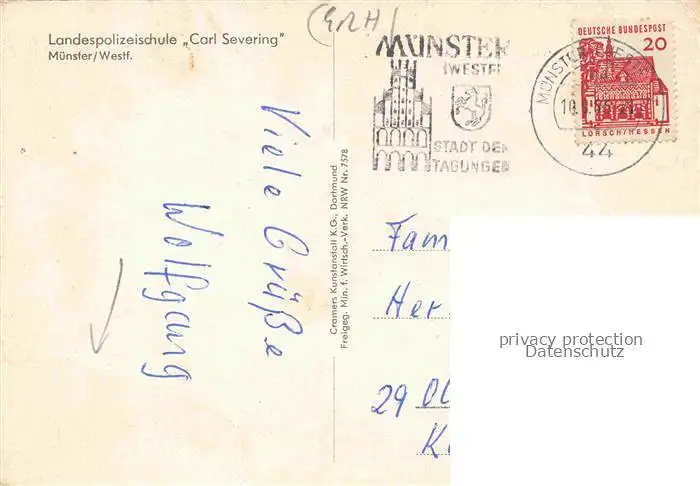 Landespolizeischule „Carl Severing"
Münster/Westf.
(GRH)
MÜNSTER
(WESTF)
STADT DER
TAGUNGEN
DEUTSCHE BUNDESPOST
20
LORSCH/HESSEN
MÜNSTER
44
Viele Grüße
Wolfgang
Cramers Kunstanstalt K.G., Dortmund
Freigeg. Min. f. Wirtsch.-Verk. NRW Nr. 7578
Fam
Her
29 Ol
K
privacy protection
Datenschutz